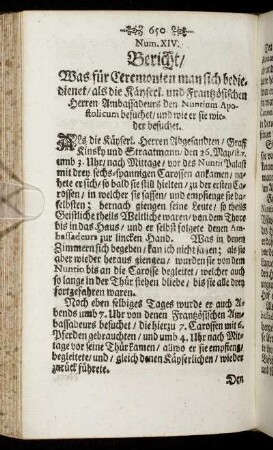 650
Num. XIV.
Bericht/
Was für Ceremonien man sich bedie-
dienet/als die Käyserl. und Frantzösischen
Herren Ambassadeurs den Nuntium Apo-
stolicum besuchet/und wie er sie wie-
der besuchet.
Als die Käyserl. Herren Abgesandten/ Graff
Kinsky und Straatmann/ den 26. May/ st.
umb 3. Uhr/nach Mittage/ vor des Nuntii Palast
mit drey sechs-spannigen Carossen ankamen/ na-
hete er sich/ so bald sie still hielten/ zu der ersten Ca-
rossen/ in welcher sie sassen/ und empfienge sie da-
selbsten; hernach giengen seine Leute/ so theils
Geistliche theils Weltliche waren/ von dem Thore
bis in das Haus/ und er selbst folgete denen Am-
bassadeurs zur lincken Hand. Was in denen
Zimmern sich begeben/ kan ich nicht sagen; als sie
aber wieder heraus giengen/ wurden sie von dem
Nuntio bis an die Carosse begleitet/ welcher auch
so lange in der Thür stehen bliebe/ bis sie alle drey
fortgefahren waren.
Noch eben selbiges Tages wurde er auch A-
bends umb 7. Uhr von denen Frantzösischen Am-
bassadeurs besuchet/ die hierzu 7. Carossen mit 6.
Pferden gebrauchten/ und umb 4. Uhr nach Mit-
tage vor seine Thür kamen/ allwo er sie empfieng/
begleitete/ und/ gleich denen Käyserlichen/ wieder
zurück führete.
Den